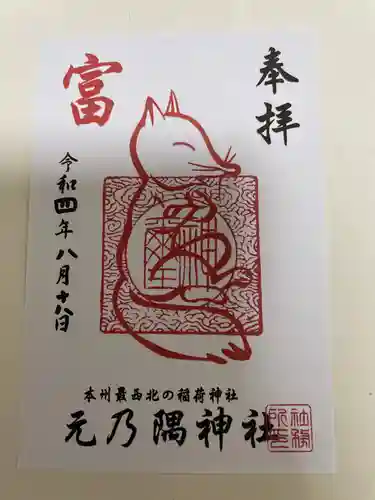 奉拝
富
令和四年八月十八日
本州最西北の稲荷神社
元乃隅神社
社務所之印